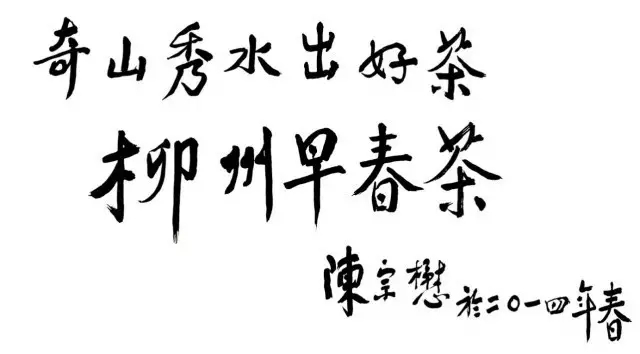 奇山秀水出好茶
柳州早春茶
陳宗懋於二〇一四年春